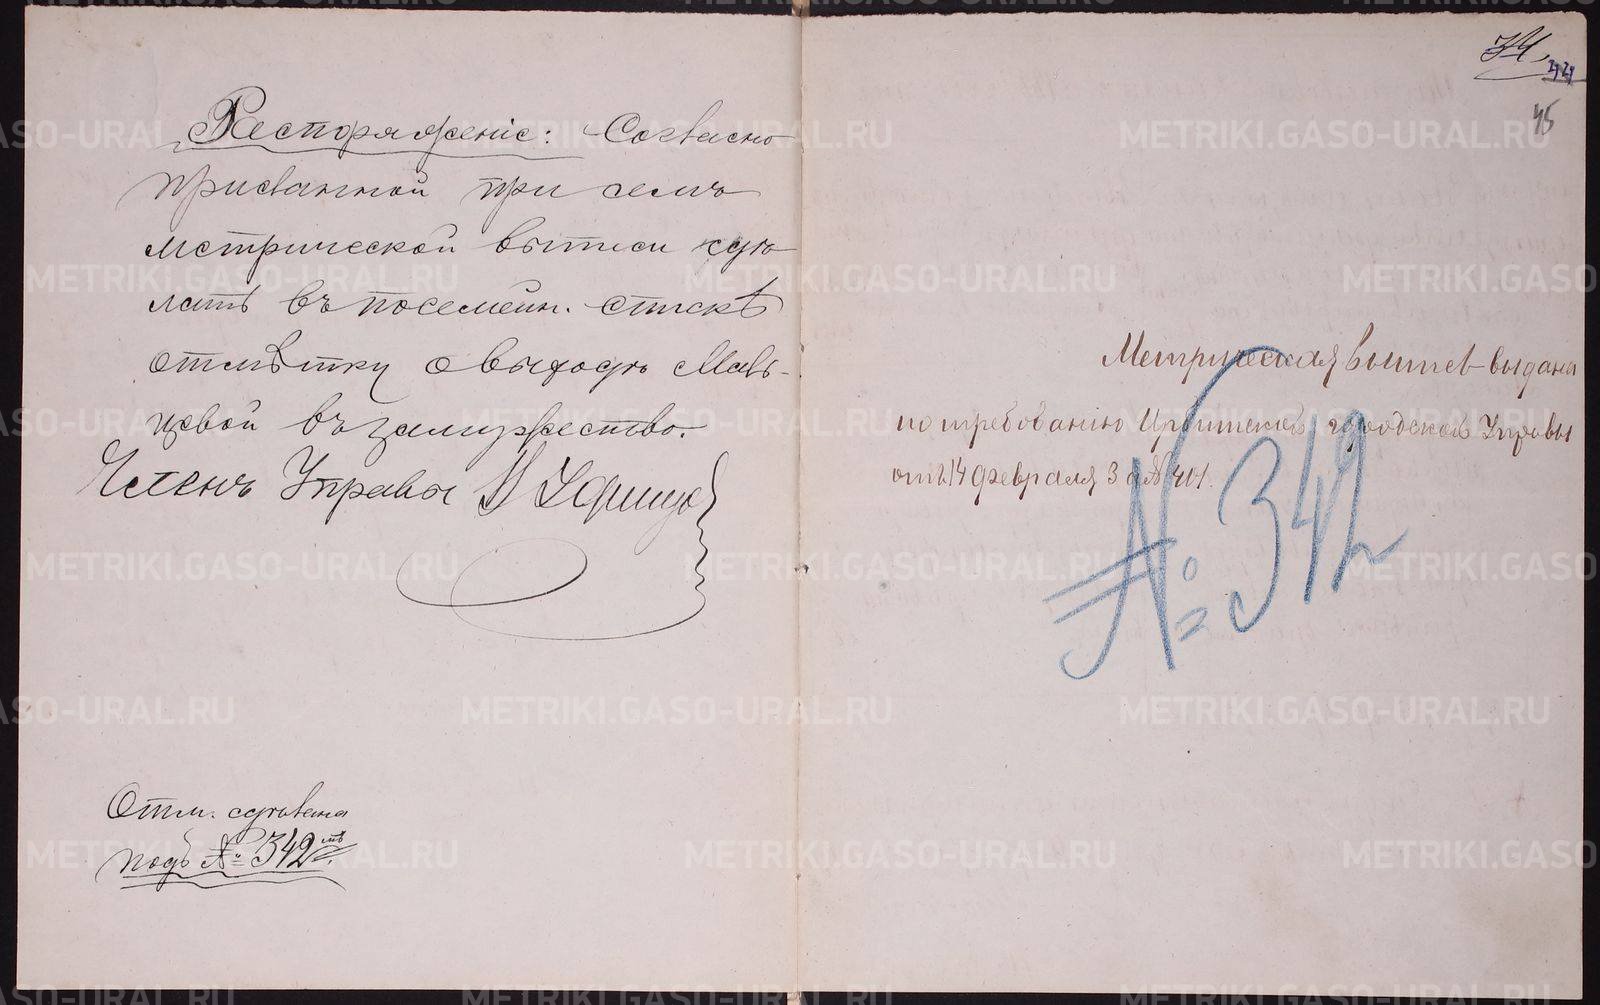 Распоряженіе: Согласно
присланной при семъ
метрической выписи сдѣ-
лать въ посемейн. спискѣ
отмѣтку о выходѣ Маль-
цевой въ замужество.
Членъ Управы
Отм. сдѣлана
подъ № 342мъ
34
44
45
Метрическая выпись выдана
по требованію Ирбитской городской Управы
отъ 14 февраля за № 401.
№ 342
METRIKI.GASO-URAL.RU